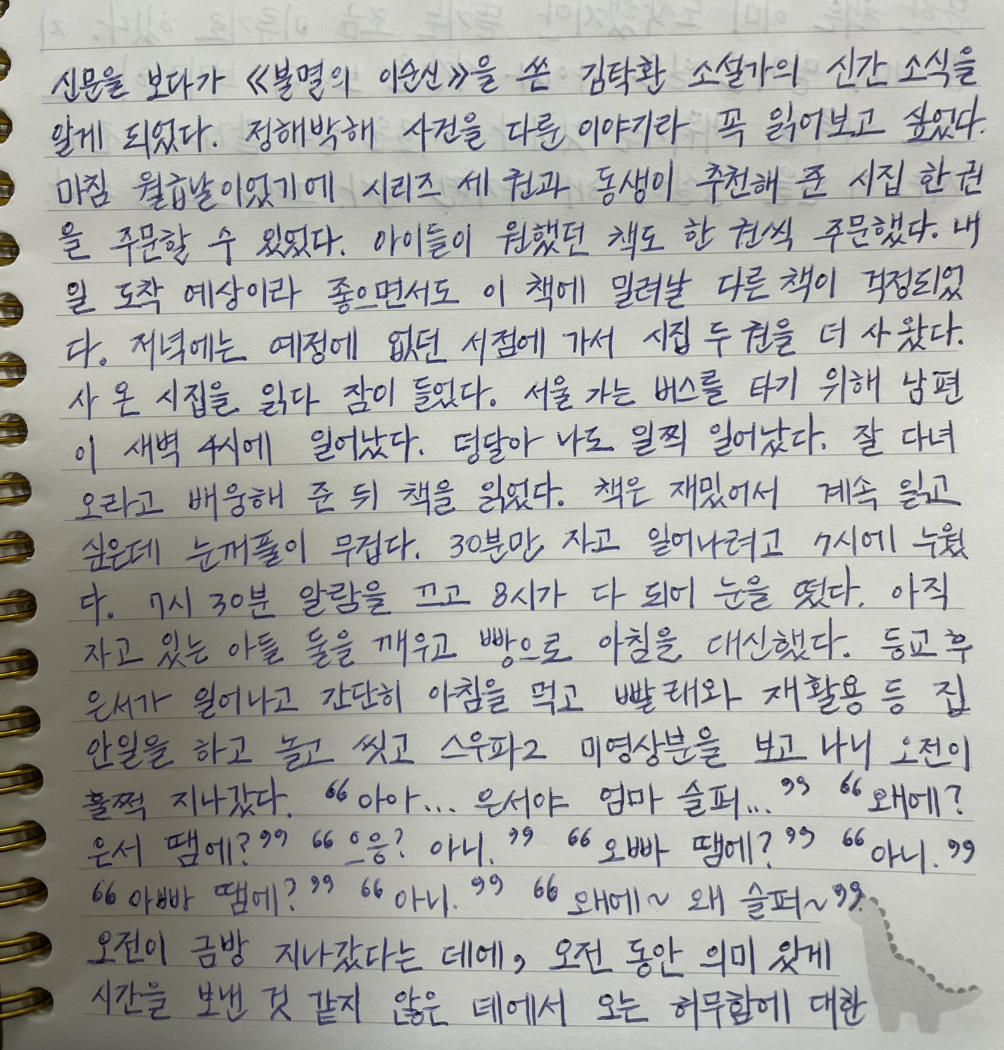 신문을 보다가 《불멸의 이순신》을 쓴 김탁환 소설가의 신간 소식을
알게 되었다. 정해박해 사건을 다룬 이야기라 꼭 읽어보고 싶었다.
마침 월급날이었기에 시리즈 세 권과 동생이 추천해 준 시집 한 권
을 주문할 수 있었다. 아이들이 원했던 책도 한 권씩 주문했다. 내
일 도착 예상이라 좋으면서도 이 책에 밀려날 다른 책이 걱정되었
다. 저녁에는 예정에 없던 서점에 가서 시집 두 권을 더 사 왔다.
사 온 시집을 읽다 잠이 들었다. 서울 가는 버스를 타기 위해 남편
이 새벽 4시에 일어났다. 덩달아 나도 일찍 일어났다. 잘 다녀
오라고 배웅해 준 뒤 책을 읽었다. 책은 재밌어서 계속 읽고
싶은데 눈꺼풀이 무겁다. 30분만 자고 일어나려고 7시에 누웠
다. 7시 30분 알람을 끄고 8시가 다 되어 눈을 떴다. 아직
자고 있는 아들 둘을 깨우고 빵으로 아침을 대신했다. 등교 후
은서가 일어나고 간단히 아침을 먹고 빨래와 재활용 등 집
안일을 하고 놀고 씻고 스우파2 미영상분을 보고 나니 오전이
훌쩍 지나갔다. “아아... 은서야 엄마 슬퍼...” “왜에?
은서 땜에?” “으응? 아니.” “오빠 땜에?” “아니.”
“아빠 땜에?” “아니.” “왜에~ 왜 슬퍼~”
오전이 금방 지나갔다는 데에, 오전 동안 의미 있게
시간을 보낸 것 같지 않은 데에서 오는 허무함에 대한